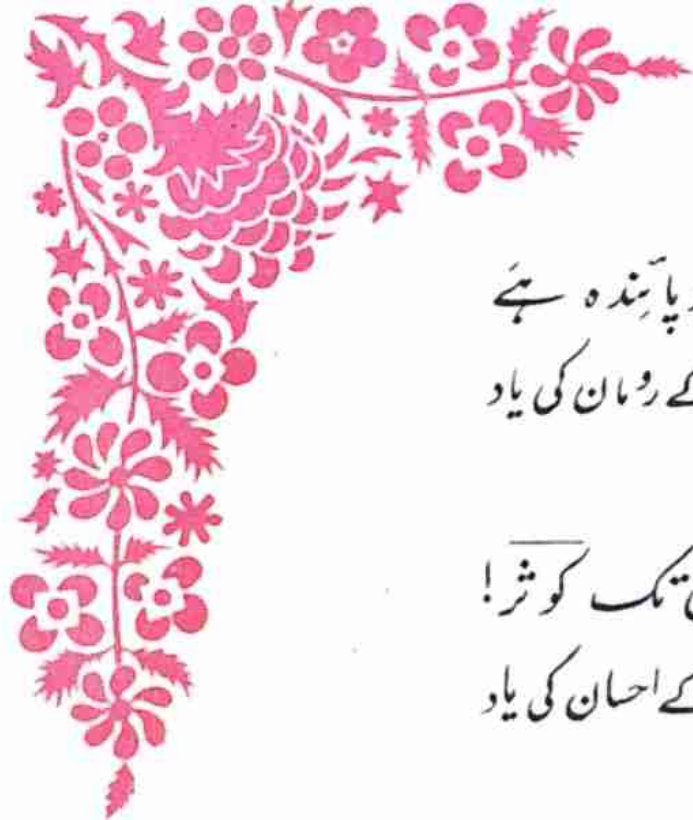 پائندہ ہے
کے رومان کی یاد
تک کوثر!
کے احسان کی یاد